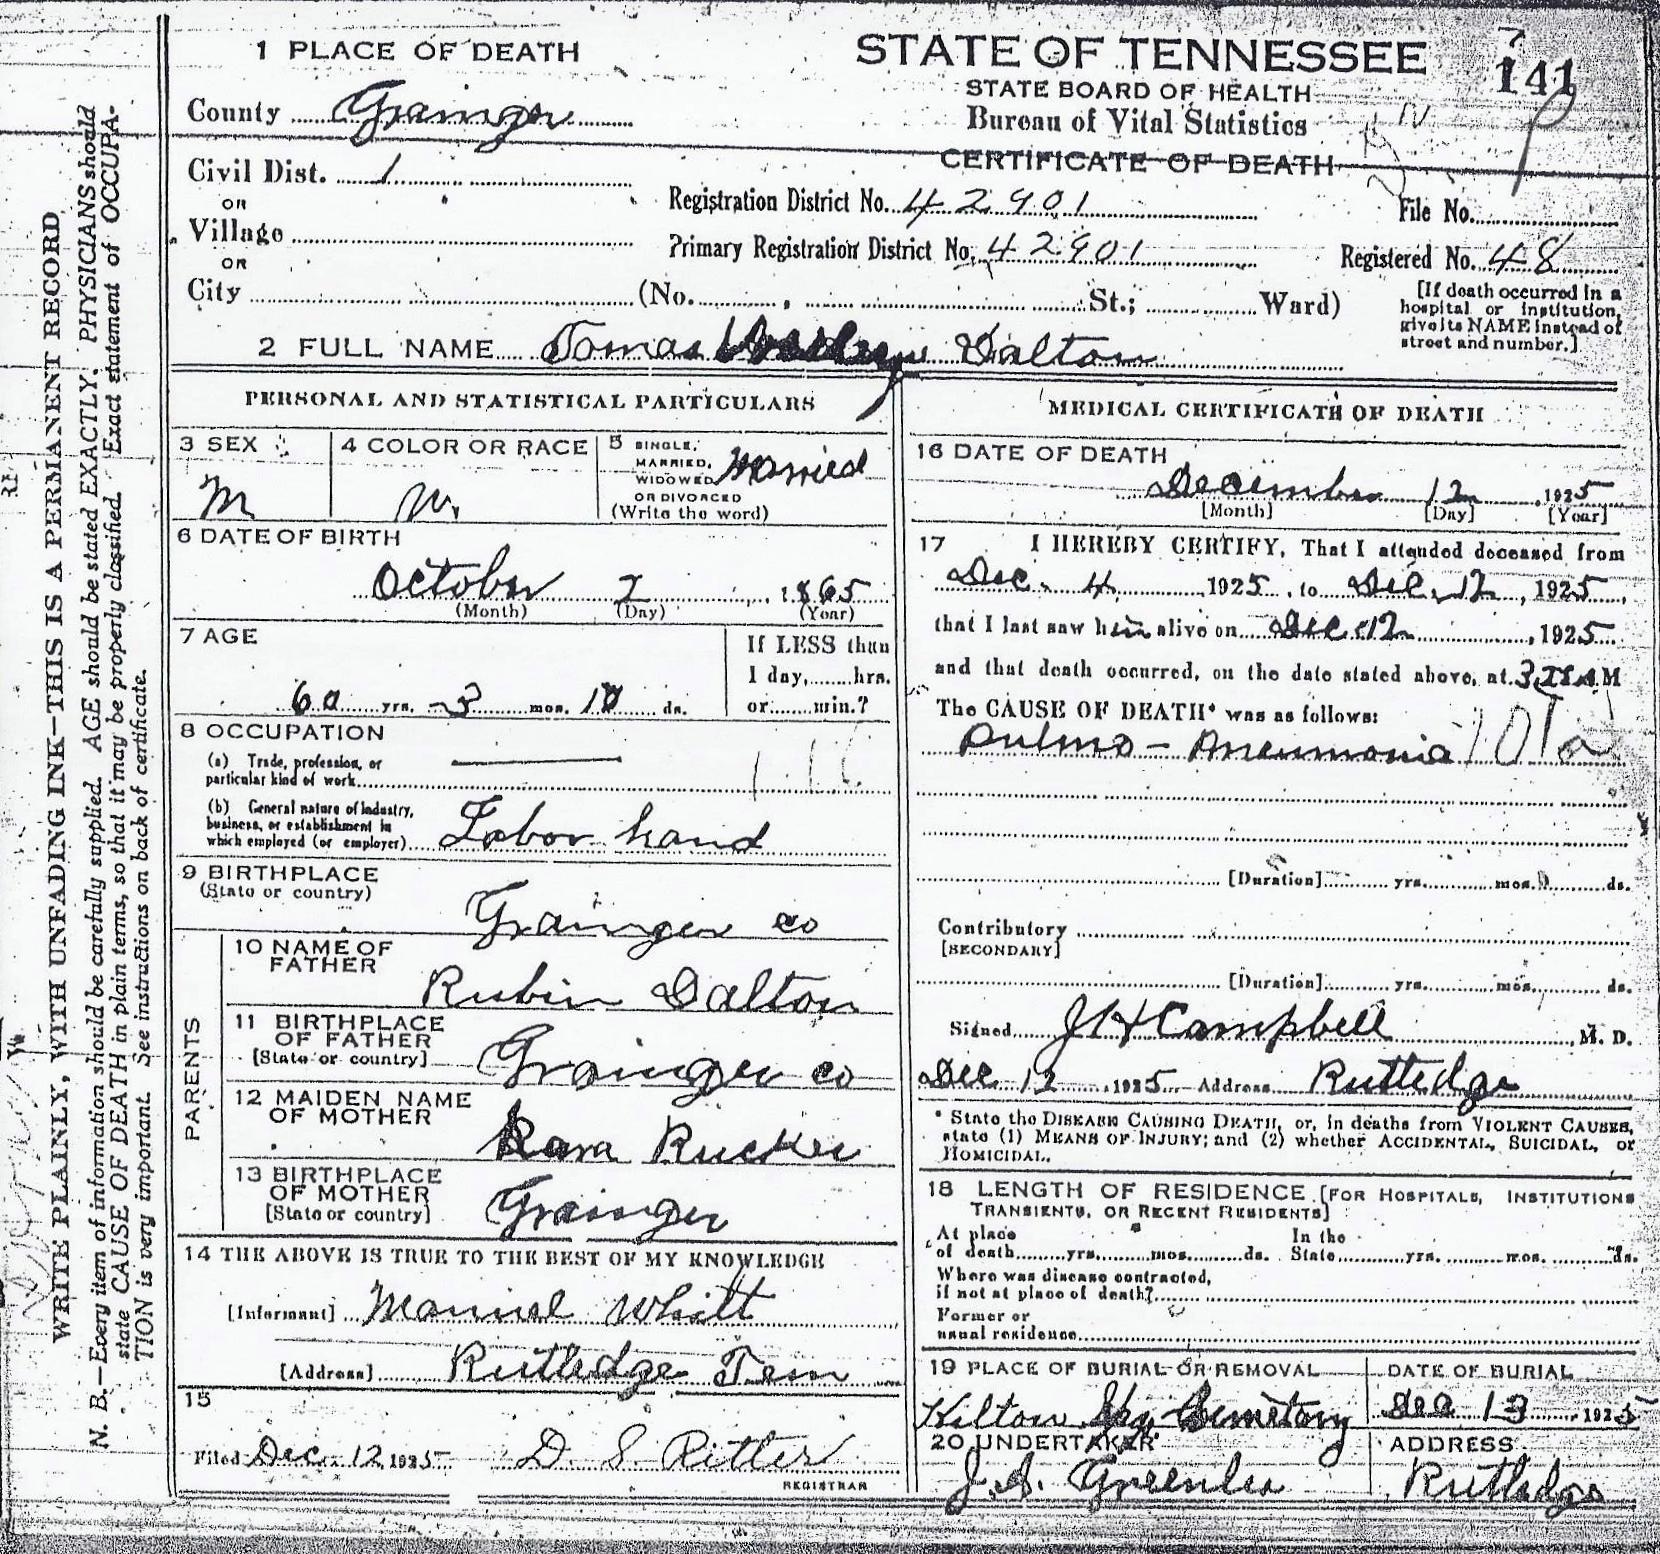 1 PLACE OF DEATH
STATE OF TENNESSEE
STATE BOARD OF HEALTH
Bureau of Vital Statistics
CERTIFICATE OF DEATH
7
141
County Grainger
Civil Dist. 1
OR
Village
OR
City (No. , St.; Ward)
Registration District No. 42901
File No.
Primary Registration District No. 42901
Registered No. 48
[If death occurred in a hospital or institution, give its NAME instead of street and number.]
2 FULL NAME Tomas Dalton
PERSONAL AND STATISTICAL PARTICULARS
3 SEX
M
4 COLOR OR RACE
W.
5 SINGLE, MARRIED, WIDOWED OR DIVORCED (Write the word)
Married
6 DATE OF BIRTH
October 2, 1865
(Month) (Day) (Year)
7 AGE
60 yrs. 3 mos. 10 ds.
If LESS than
1 day, hrs.
or min.?
8 OCCUPATION
(a) Trade, profession, or
particular kind of work
(b) General nature of industry,
business, or establishment in
which employed (or employer) Labor hand
9 BIRTHPLACE
(State or country)
Grainger co
PARENTS
10 NAME OF
FATHER
Rubin Dalton
11 BIRTHPLACE
OF FATHER
[State or country]
Grainger co
12 MAIDEN NAME
OF MOTHER
Rucker
13 BIRTHPLACE
OF MOTHER
[State or country]
Grainger
14 THE ABOVE IS TRUE TO THE BEST OF MY KNOWLEDGE
[Informant] Whitt
[Address] Rutledge Tenn
15
Filed Dec. 12, 1925 D. S. Ritter
REGISTRAR
MEDICAL CERTIFICATE OF DEATH
16 DATE OF DEATH
December 12, 1925
[Month] [Day] [Year]
17 I HEREBY CERTIFY, That I attended deceased from
Dec. 4 1925, to Dec. 12, 1925,
that I last saw him alive on Dec. 12, 1925
and that death occurred, on the date stated above, at M
The CAUSE OF DEATH* was as follows:
Pulmo - Pneumonia 101a
[Duration] yrs. mos. ds.
Contributory
[SECONDARY]
[Duration] yrs. mos. ds.
Signed J H Campbell, M. D.
Dec 12, 1925 Address Rutledge
* State the DISEASE CAUSING DEATH, or, in deaths from VIOLENT CAUSES,
state (1) MEANS OF INJURY; and (2) whether ACCIDENTAL, SUICIDAL, or
HOMICIDAL.
18 LENGTH OF RESIDENCE [FOR HOSPITALS, INSTITUTIONS
TRANSIENTS, OR RECENT RESIDENTS]
At place
of death yrs. mos. ds.
In the
State yrs. mos. ds.
Where was disease contracted,
if not at place of death?
Former or
usual residence
19 PLACE OF BURIAL OR REMOVAL
Cemetery
DATE OF BURIAL
Dec 13, 1925
20 UNDERTAKER
J. S. Greenlee
ADDRESS
Rutledge
WRITE PLAINLY, WITH UNFADING INK—THIS IS A PERMANENT RECORD
N. B.—Every item of information should be carefully supplied. AGE should be stated EXACTLY. PHYSICIANS should
state CAUSE OF DEATH in plain terms, so that it may be properly classified. Exact statement of OCCUPA-
TION is very important. See instructions on back of certificate.